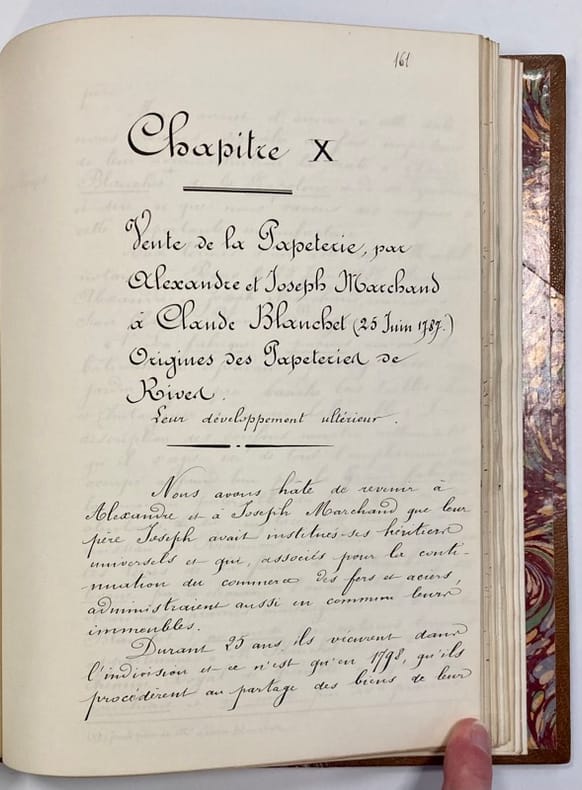 161
Chapitre X
Vente de la Papeterie, par
Alexandre et Joseph Marchand
à Claude Blanchet (25 Juin 1787.)
Origines des Papeteries de
Rives.
Leur développement ultérieur.
Nous avons hâte de revenir à
Alexandre et à Joseph Marchand que leur
père Joseph avait institués ses héritiers
universels et qui, associés pour la conti-
nuation du commerce des fers et aciers,
administraient aussi en commun leurs
immeubles.
Durant 25 ans ils vécurent dans
l'indivision et ce n'est qu'en 1798, qu'ils
procédèrent au partage des biens de leur